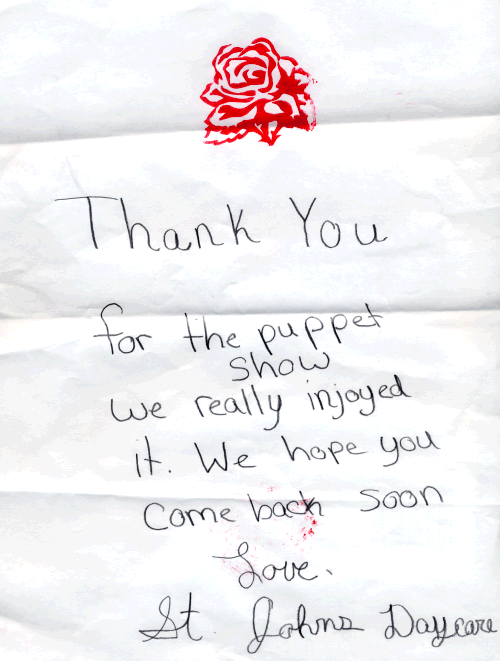 Thank You
for the puppet
show
we really injoyed
it. We hope you
Come back soon
Love.
St. Johns Daycare